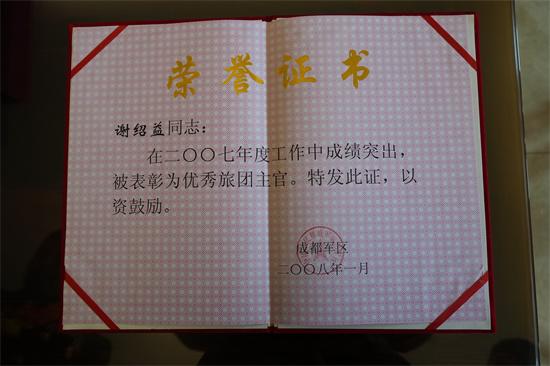 荣誉证书
谢绍益同志：
在二〇〇七年度工作中成绩突出，
被表彰为优秀旅团主官。特发此证，以
资鼓励。
成都军区
二〇〇八年一月